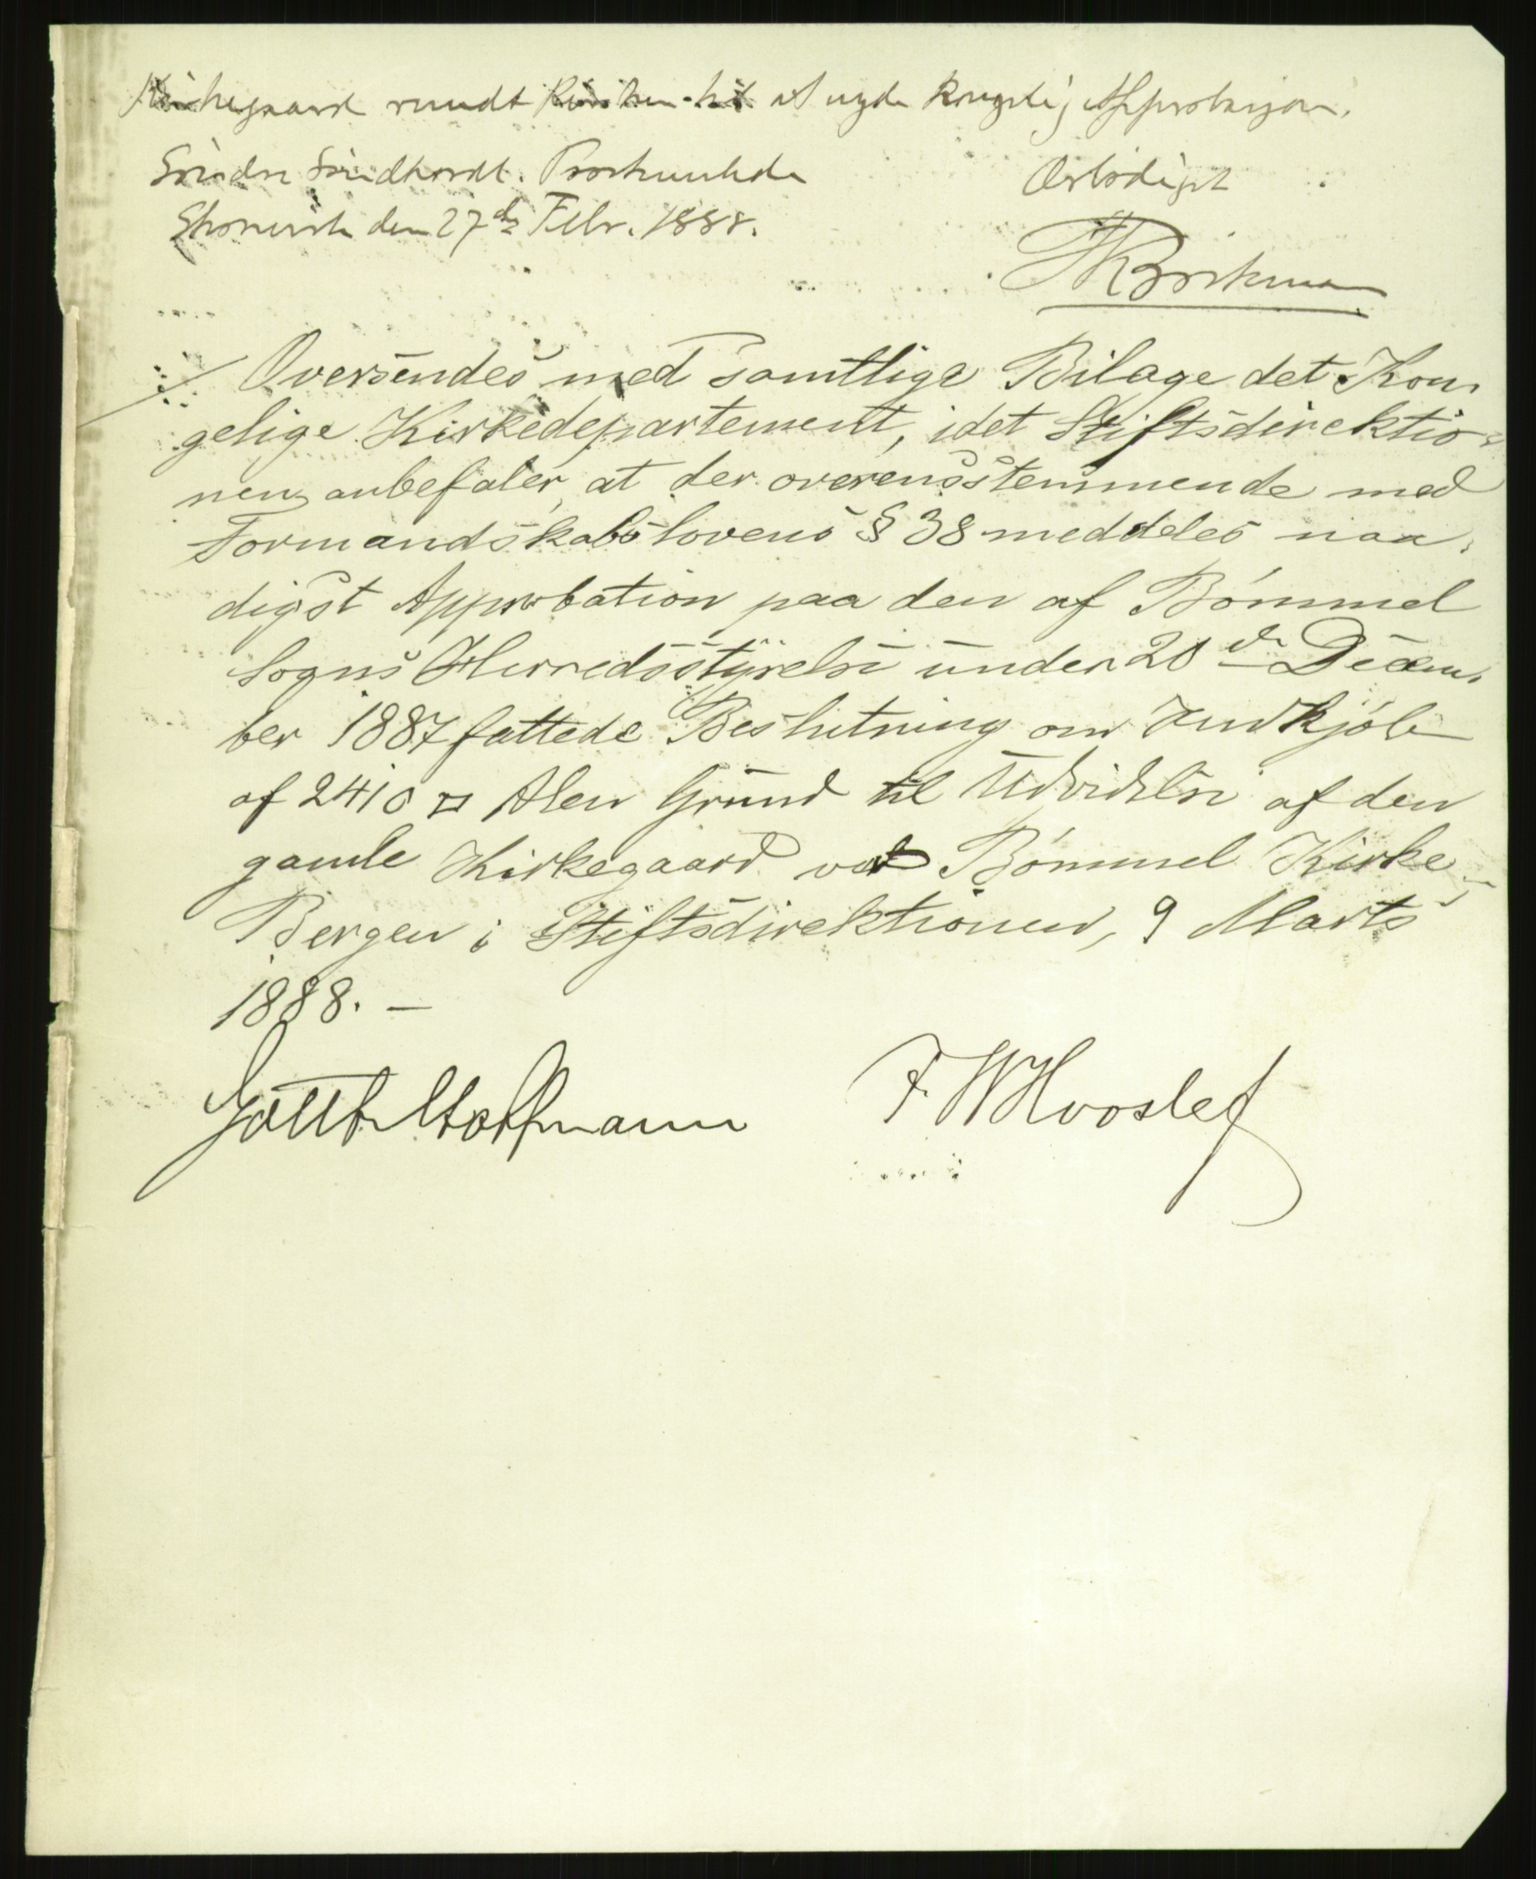 Kirkegaard rundt Kirken til at nyde kongelig Approbasjon.
Søndre Søndhordl. Prosteembede
den 27de Febr. 1888.
Ærbødigst
Overséndes med samtlige Bilage det Kon
gelige Kirkedepartement, idet Stiftsdirektio-
nen anbefaler, at der overensstemmende med
Formandskabslovens § 38 meddeles naa-
digst Approbation paa den af Bømmel
Sogns Herredsstyrelse under 20de Decem-
ber 1887 fattede Beslutning om Indkjøb
af 2410 □ Alen Grund til Udvidelse af den
gamle Kirkegaard ved Bømmel Kirke
Bergen i Stiftsdirektionen, 9 Marts
1888. –
F. W Hvoslef